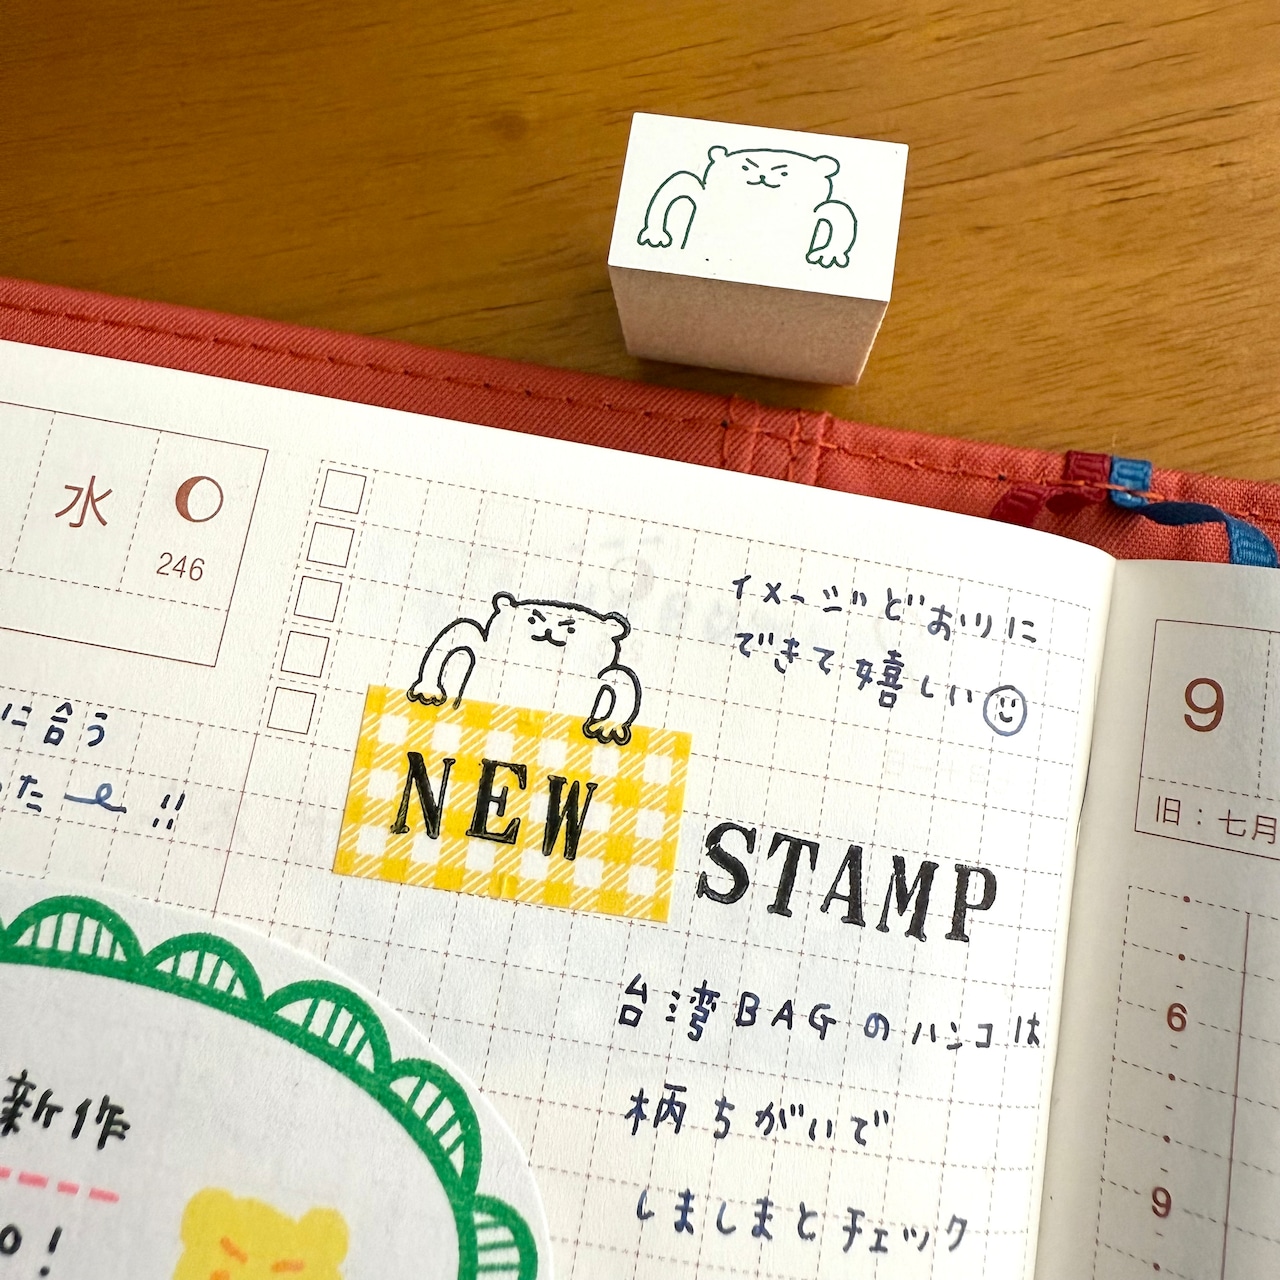 水
246
に合う
た〜!!
イメージどおりに
できて嬉しい
NEW STAMP
台湾BAGのハンコは
柄ちがいで
しましまとチェック
新作
o!
9
旧：七月
6
9